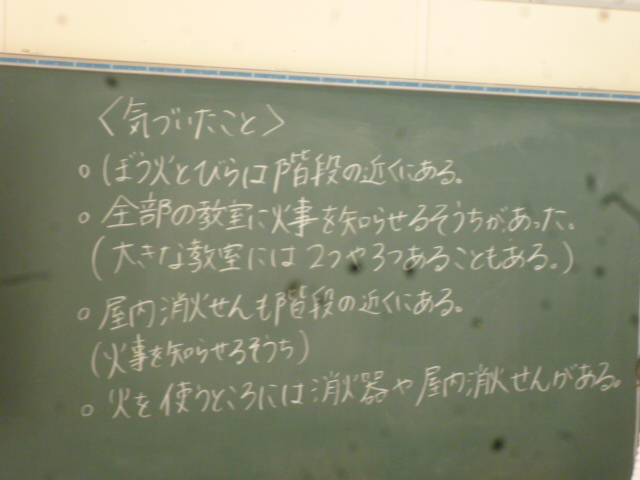 〈気づいたこと〉
○ぼう火とびらは階段の近くにある。
○全部の教室に火事を知らせるそうちがあった。
(大きな教室には2つや3つあることもある。)
○屋内消火せんも階段の近くにある。
(火事を知らせるそうち)
○火を使うところには消火器や屋内消火せんがある。